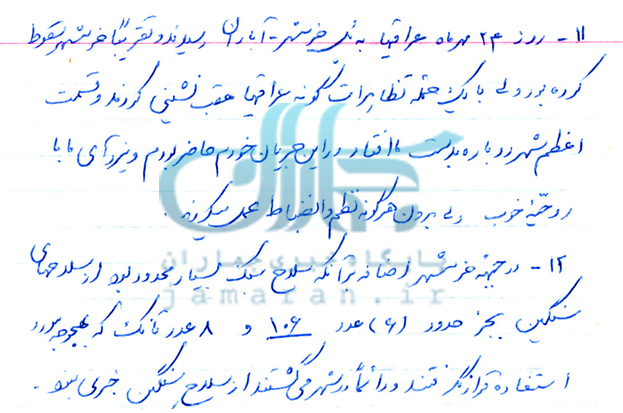 ۱۱- روز ۲۳ مهرماه عراقیها به پل خرمشهر-آبادان رسیدند و تقریباً خرمشهر سقوط
کرده بود ولی با یک حمله تظاهرات گونه عراقیها عقب نشینی کردند و قسمت
اعظم شهر دوباره بدست ما افتاد در این جریان خودم حاضر بودم و نیروهای ما با
روحیه خوب ولی بدون هرگونه نظم و انضباط عمل میکردند.
۱۲- در جبهه خرمشهر اضافه بر آنکه سلاح سبک بسیار محدود بود از سلاحهای
سنگین بجز حدود (۶) عدد ۱۰۶ و ۸ عدد تانک که بهیچوجه مورد
استفاده قرار نگرفتند و دائماً در شهر می گشتند از سلاح سنگین خبری نبود.
جماران
پایگاه خبری جماران
jamaran.ir